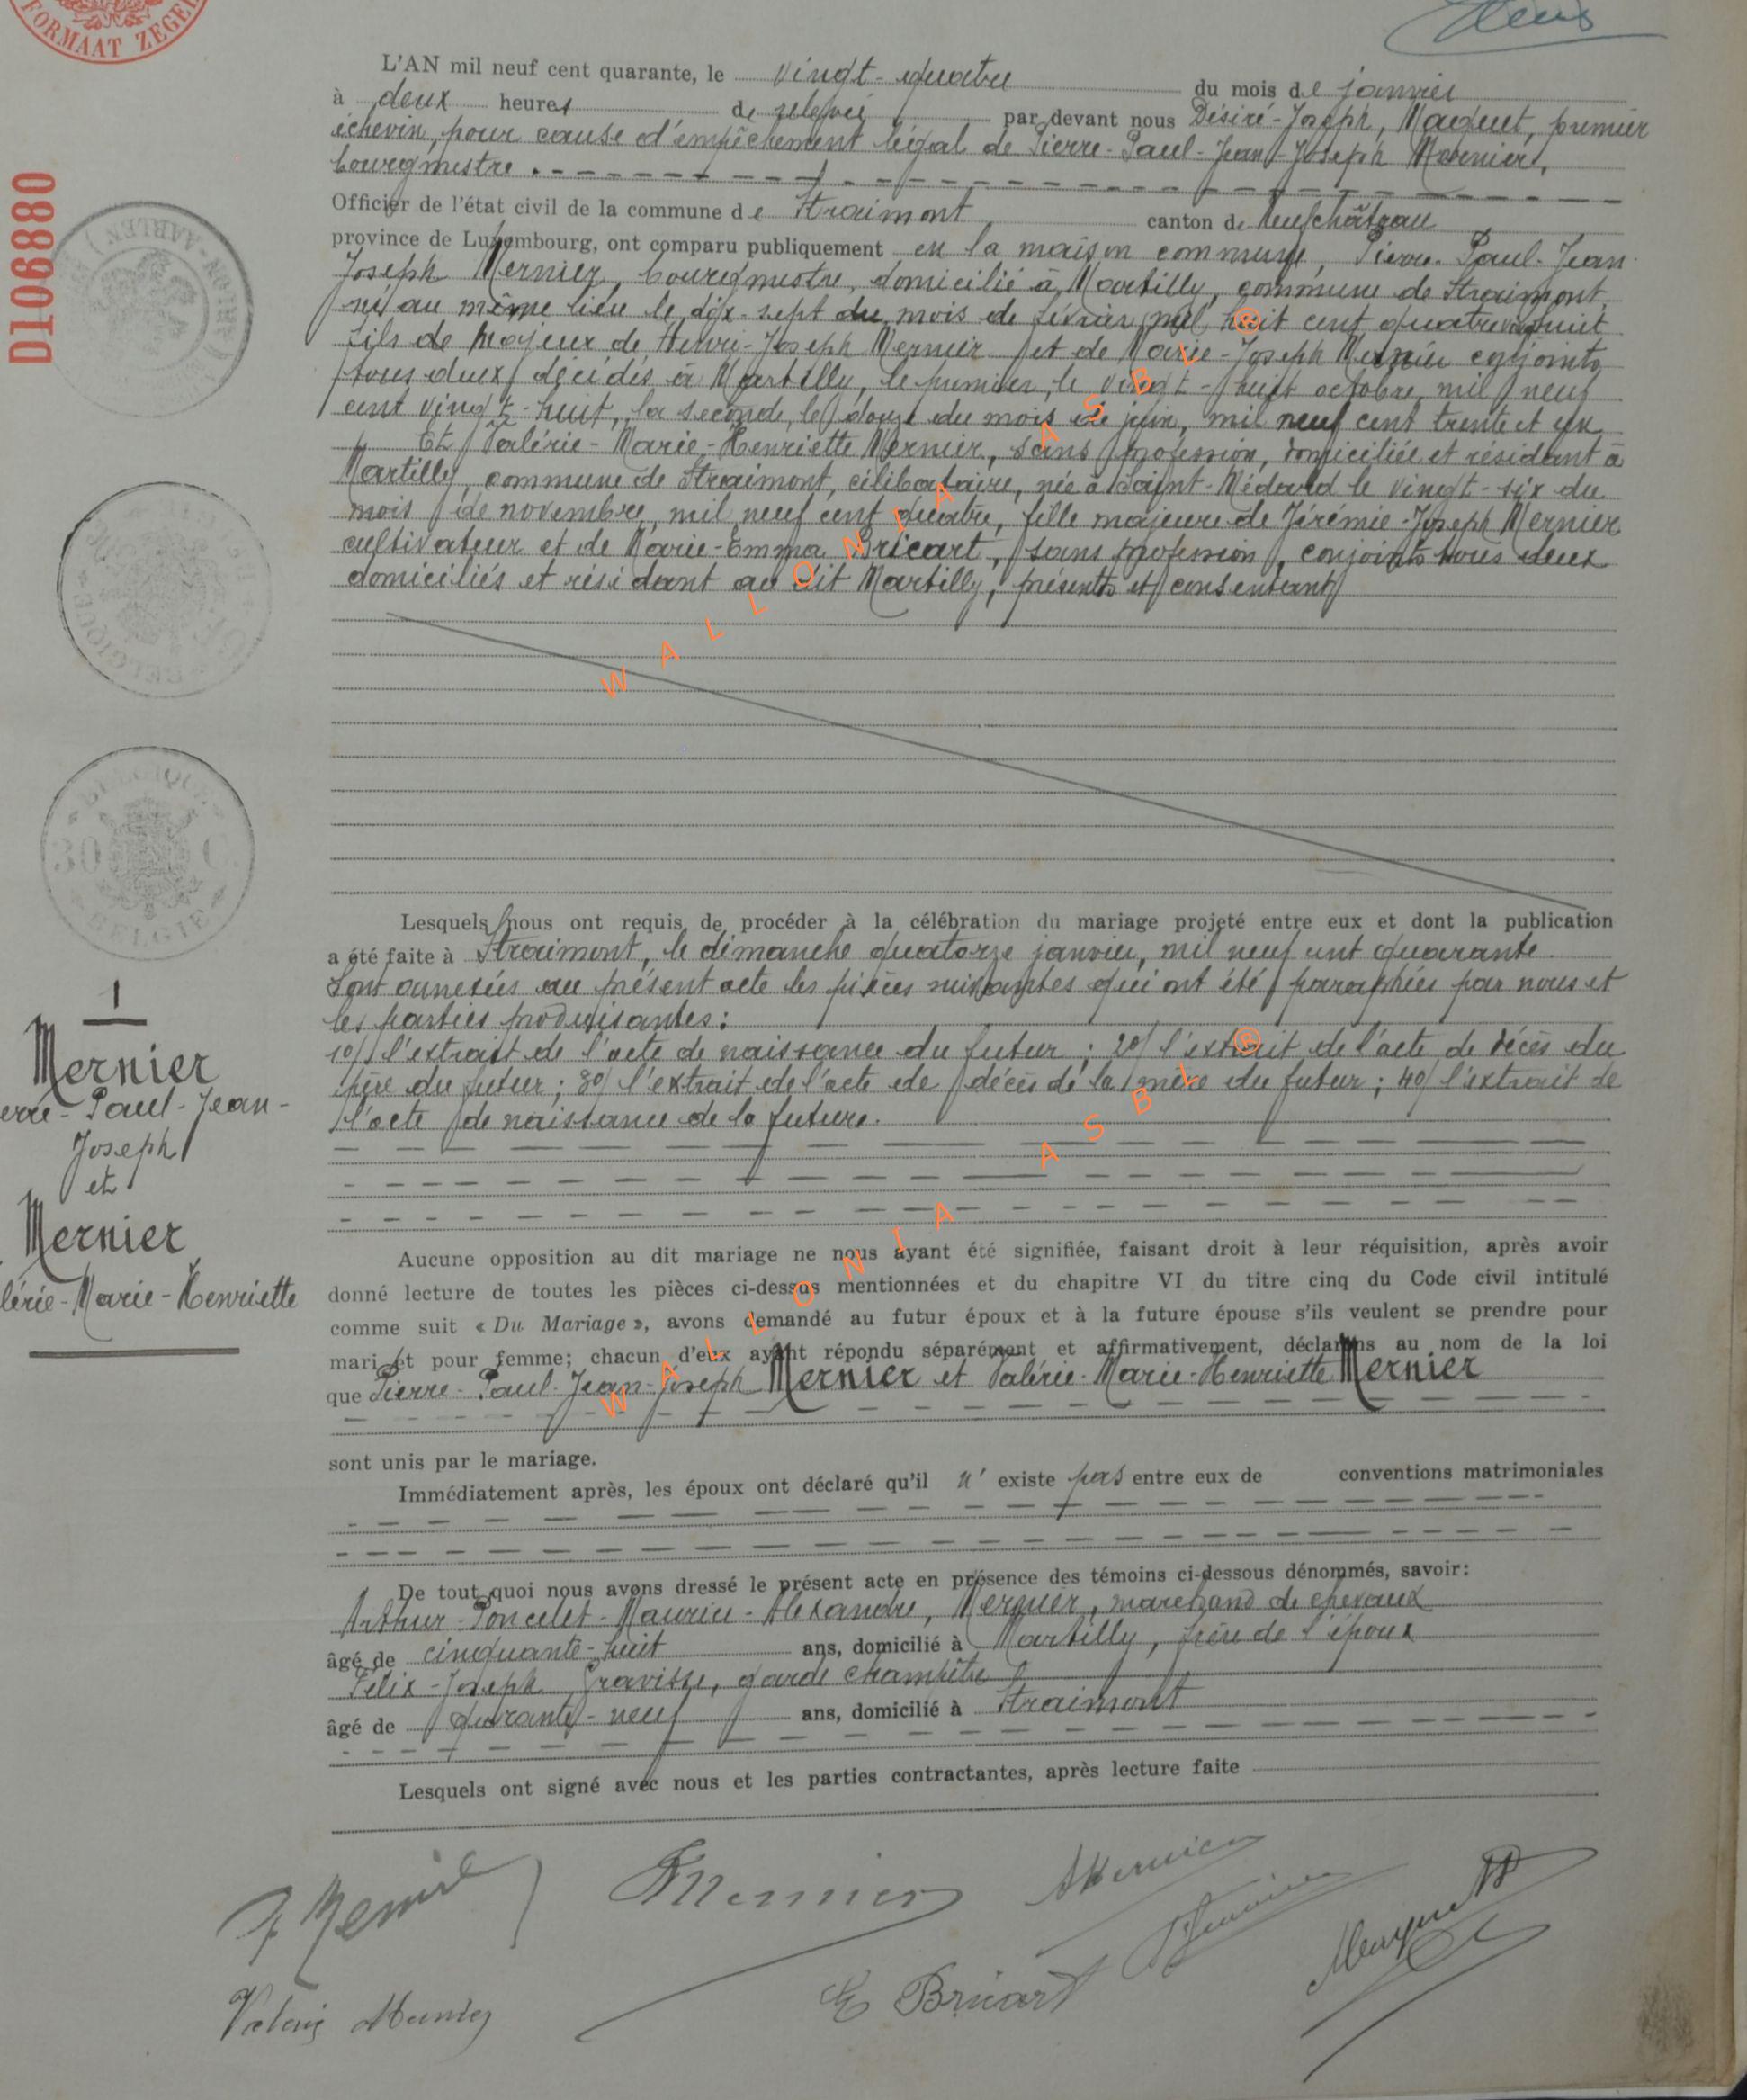 FORMAAT ZEGEL
L'AN mil neuf cent quarante, le vingt-quatre du mois de janvier
à deux heures de relevée par devant nous Désiré-Joseph, Maquet, premier
échevin, pour cause d'empêchement légal de Pierre-Paul-Jean-Joseph Mernier,
bourgmestre.
Officier de l'état civil de la commune de Straimont canton de Neufchâteau
province de Luxembourg, ont comparu publiquement en la maison commune, Pierre-Paul-Jean-
Joseph Mernier, bourgmestre, domicilié à Martilly, commune de Straimont,
né au même lieu le dix-sept du mois de février mil huit cent quatrevingthuit
fils de majeur de Henri-Joseph Mernier et de Marie-Joseph Mernier conjoints
tous deux décédés à Martilly, le premier, le vingt-huit octobre, mil neuf
cent vingt-huit, la seconde, le douze du mois de juin, mil neuf cent trente et un
Et Valérie-Marie-Henriette Mernier, sans profession, domiciliée et résidant à
Martilly, commune de Straimont, célibataire, née à Saint-Médard le vingt-six du
mois de novembre, mil neuf cent quatre, fille majeure de Jérémie-Joseph Mernier
cultivateur et de Marie-Emma Bricart, sans profession, conjoints tous deux
domiciliés et résidant au dit Martilly, présents et consentant
Lesquels nous ont requis de procéder à la célébration du mariage projeté entre eux et dont la publication
a été faite à Straimont, le dimanche quatorze janvier, mil neuf cent quarante.
Sont annexées au présent acte les pièces suivantes qui ont été paraphées par nous et
les parties produisantes:
1o/ l'extrait de l'acte de naissance du futur; 2o/ l'extrait de l'acte de décès du
père du futur; 3o/ l'extrait de l'acte de décès de la mère du futur; 4o/ l'extrait de
l'acte de naissance de la future.
Aucune opposition au dit mariage ne nous ayant été signifiée, faisant droit à leur réquisition, après avoir
donné lecture de toutes les pièces ci-dessus mentionnées et du chapitre VI du titre cinq du Code civil intitulé
comme suit « Du Mariage », avons demandé au futur époux et à la future épouse s'ils veulent se prendre pour
mari et pour femme; chacun d'eux ayant répondu séparément et affirmativement, déclarons au nom de la loi
que Pierre-Paul-Jean-Joseph Mernier et Valérie-Marie-Henriette Mernier
sont unis par le mariage.
Immédiatement après, les époux ont déclaré qu'il n'existe pas entre eux de conventions matrimoniales
De tout quoi nous avons dressé le présent acte en présence des témoins ci-dessous dénommés, savoir:
Arthur-Poncelet-Maurice-Alexandre, Mernier, marchand de chevaux
âgé de cinquante-huit ans, domicilié à Martilly, frère de l'époux
Félix-Joseph Gravisse, garde champêtre
âgé de quarante-neuf ans, domicilié à Straimont
Lesquels ont signé avec nous et les parties contractantes, après lecture faite
Mernier
AMernier
Maquet
Valérie Mernier
E Bricart
D106880
BELGIQUE
30 C
BELGIE
1
Mernier
erre-Paul-Jean-
Joseph
et
Mernier
lérie-Marie-Henriette
WALLONIA ASBL ®
WALLONIA ASBL ®